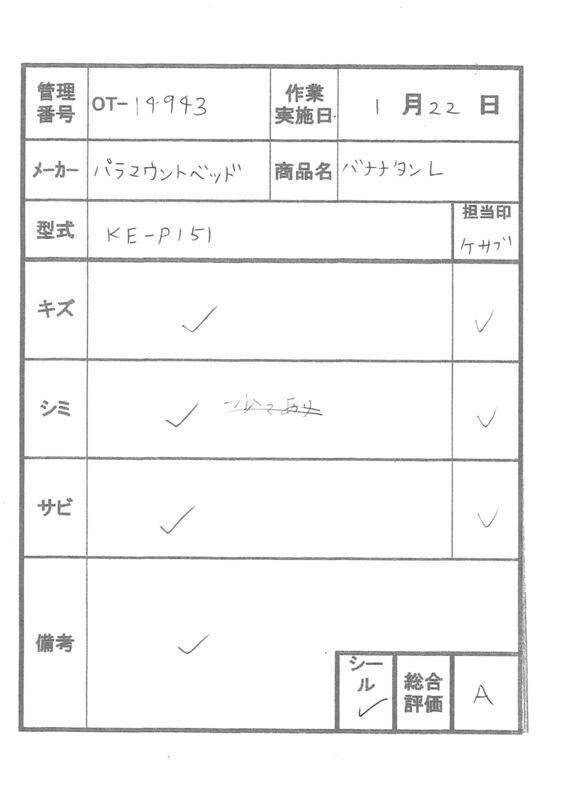 管理番号 OT-14943 作業実施日 1月22日
メーカー パラマウントベッド 商品名 バナナタンL
型式 KE-P151 担当印 ケサブ
キズ ✓ ✓
シミ ✓ ✓
サビ ✓ ✓
備考 ✓
シール ✓ 総合評価 A